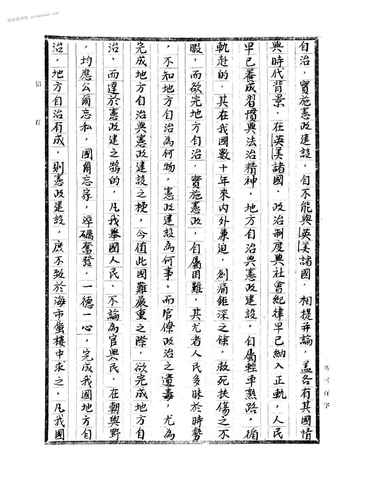 自治，實施憲政建設，自不能與英美諸國，相提並論，蓋各有其國情
與時代背景，在英美諸國，政治制度與社會紀律早已納入正軌，人民
早已養成習慣與法治精神，地方自治與憲政建設，自屬輕車熟路，循
軌赴的，其在我國數十年來內外兼迫，創痛鉅深之餘，救死扶傷之不
暇，而欲先地方自治，實施憲政，自屬困難，其尤者人民多昧於時勢
，不知地方自治為何物，憲政建設為何事，而官僚政治之遺毒，尤為
完成地方自治與憲政建設之梗，今值此國難嚴重之際，欲完成地方自
治，而達於憲政建之鵠的，凡我舉國人民，不論為官與民，在朝與野
，均應公爾忘私，國爾忘家，淬礪奮發，一德一心，完成我國地方自
治，地方自治有成，則憲政建設，庶不致於海市蜃樓中求之，凡我國